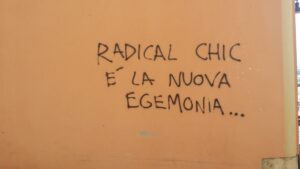 RADICAL CHIC
É LA NUOVA
EGEMONIA...